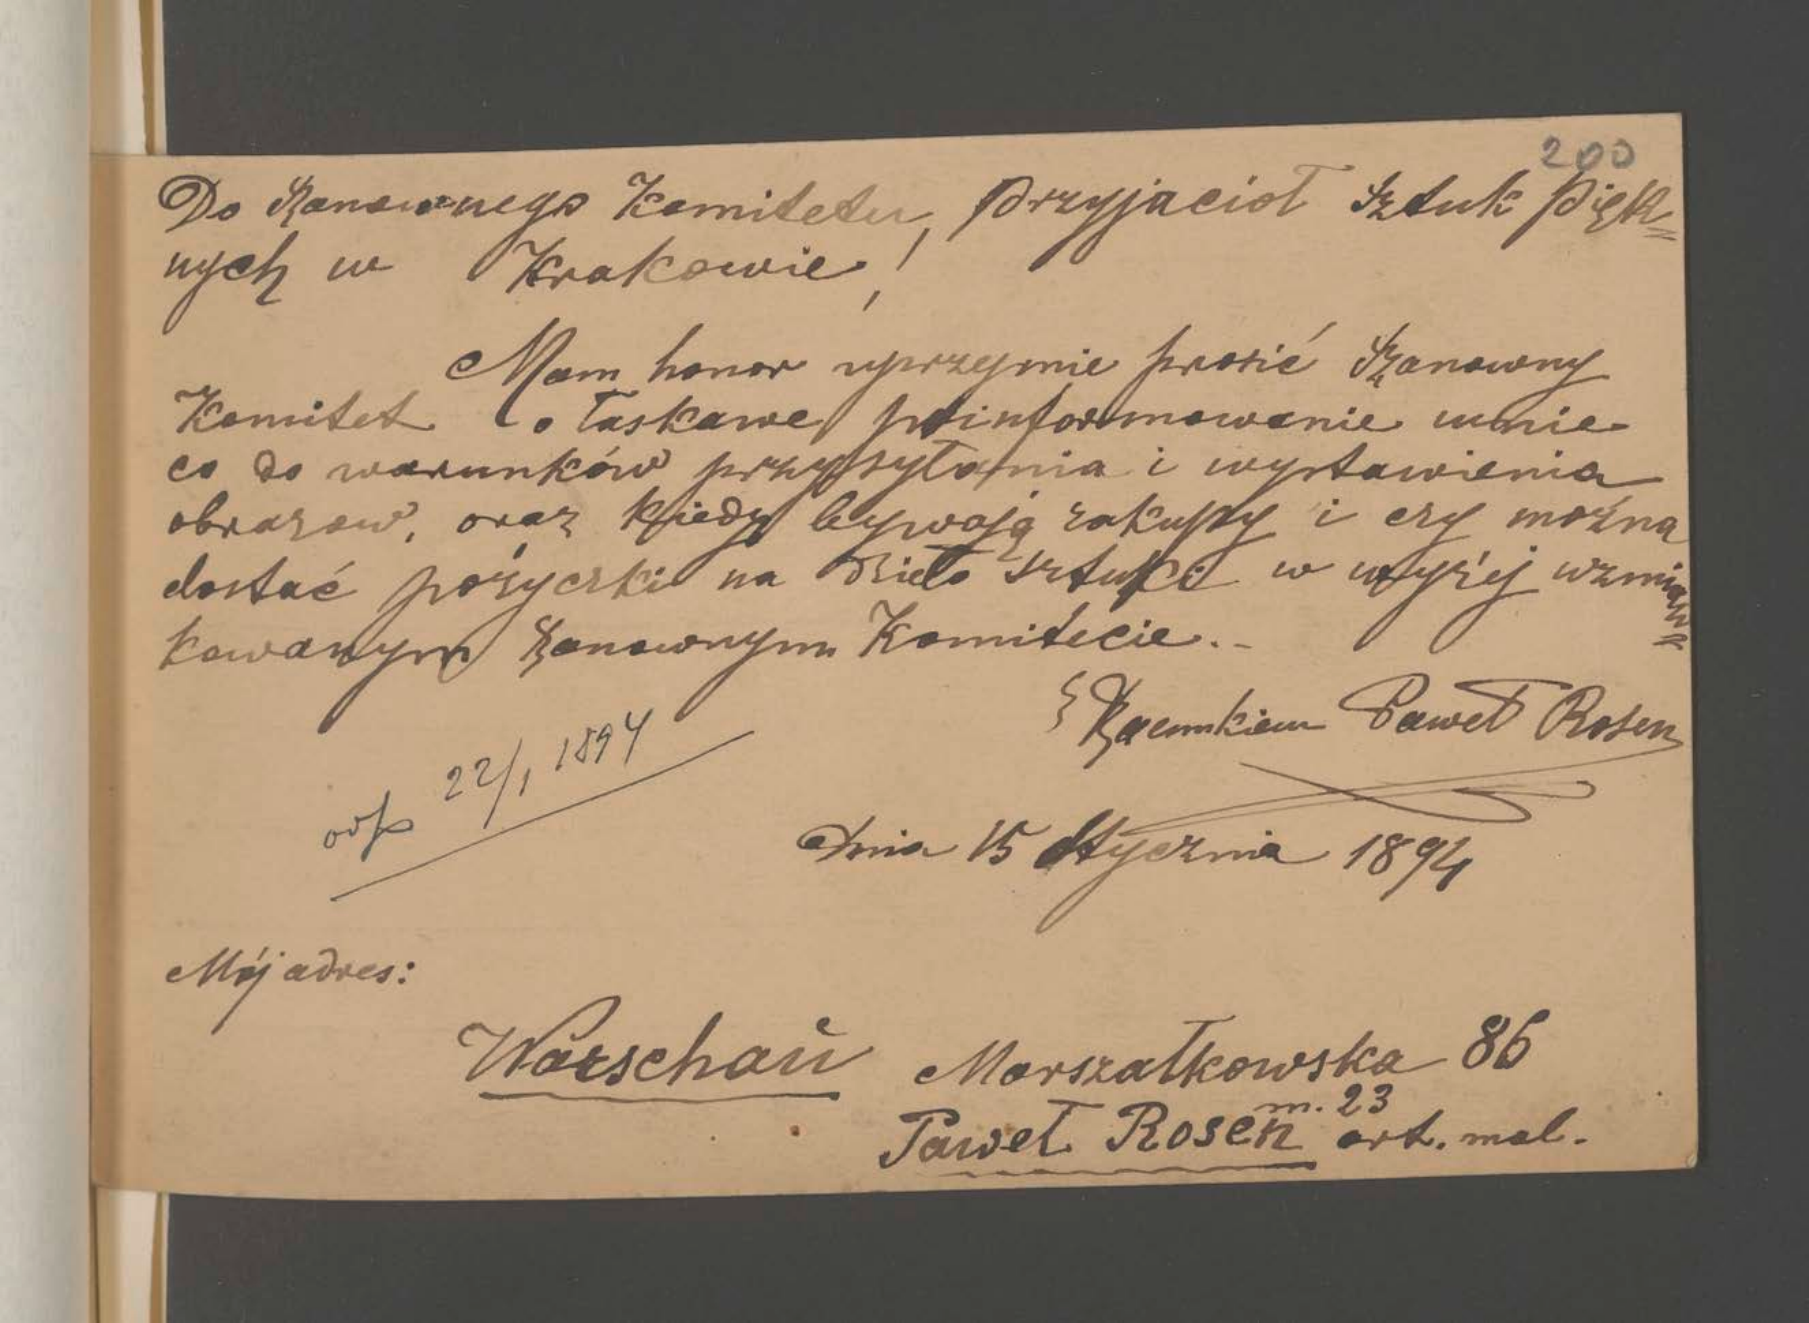 200
Do Szanownego Komitetu, Przyjaciół Sztuk Pięk=
nych w Krakowie!
Mam honor uprzejmie prosić Szanowny
Komitet o łaskawe poinformowanie mnie
co do warunków przysyłania i wystawienia
obrazow, oraz kiedy bywają zakupy i czy można
dostać pożyczki na dzieło sztuki w wyżej wzmian=
kowanym Szanownym Komitecie.-
z Szacunkiem Paweł Rosen
odp 22/1 1894
dnia 15 Stycznia 1894
Mój adres:
Warschau Marszałkowska 86
m. 23
Paweł Rosen art. mal.